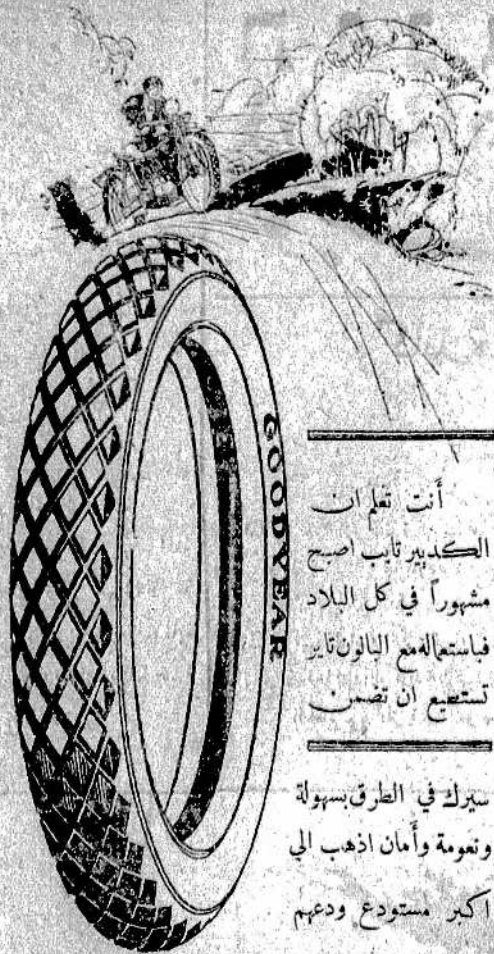 GOODYEAR
أنت تعلم ان
الكديير تايب اصبح
مشهوراً في كل البلاد
فباستعماله مع البالون تاير
تستطيع ان تضمن
سيرك في الطرق بسهولة
ونعومة وأمان اذهب الي
اكبر مستودع ودعهم